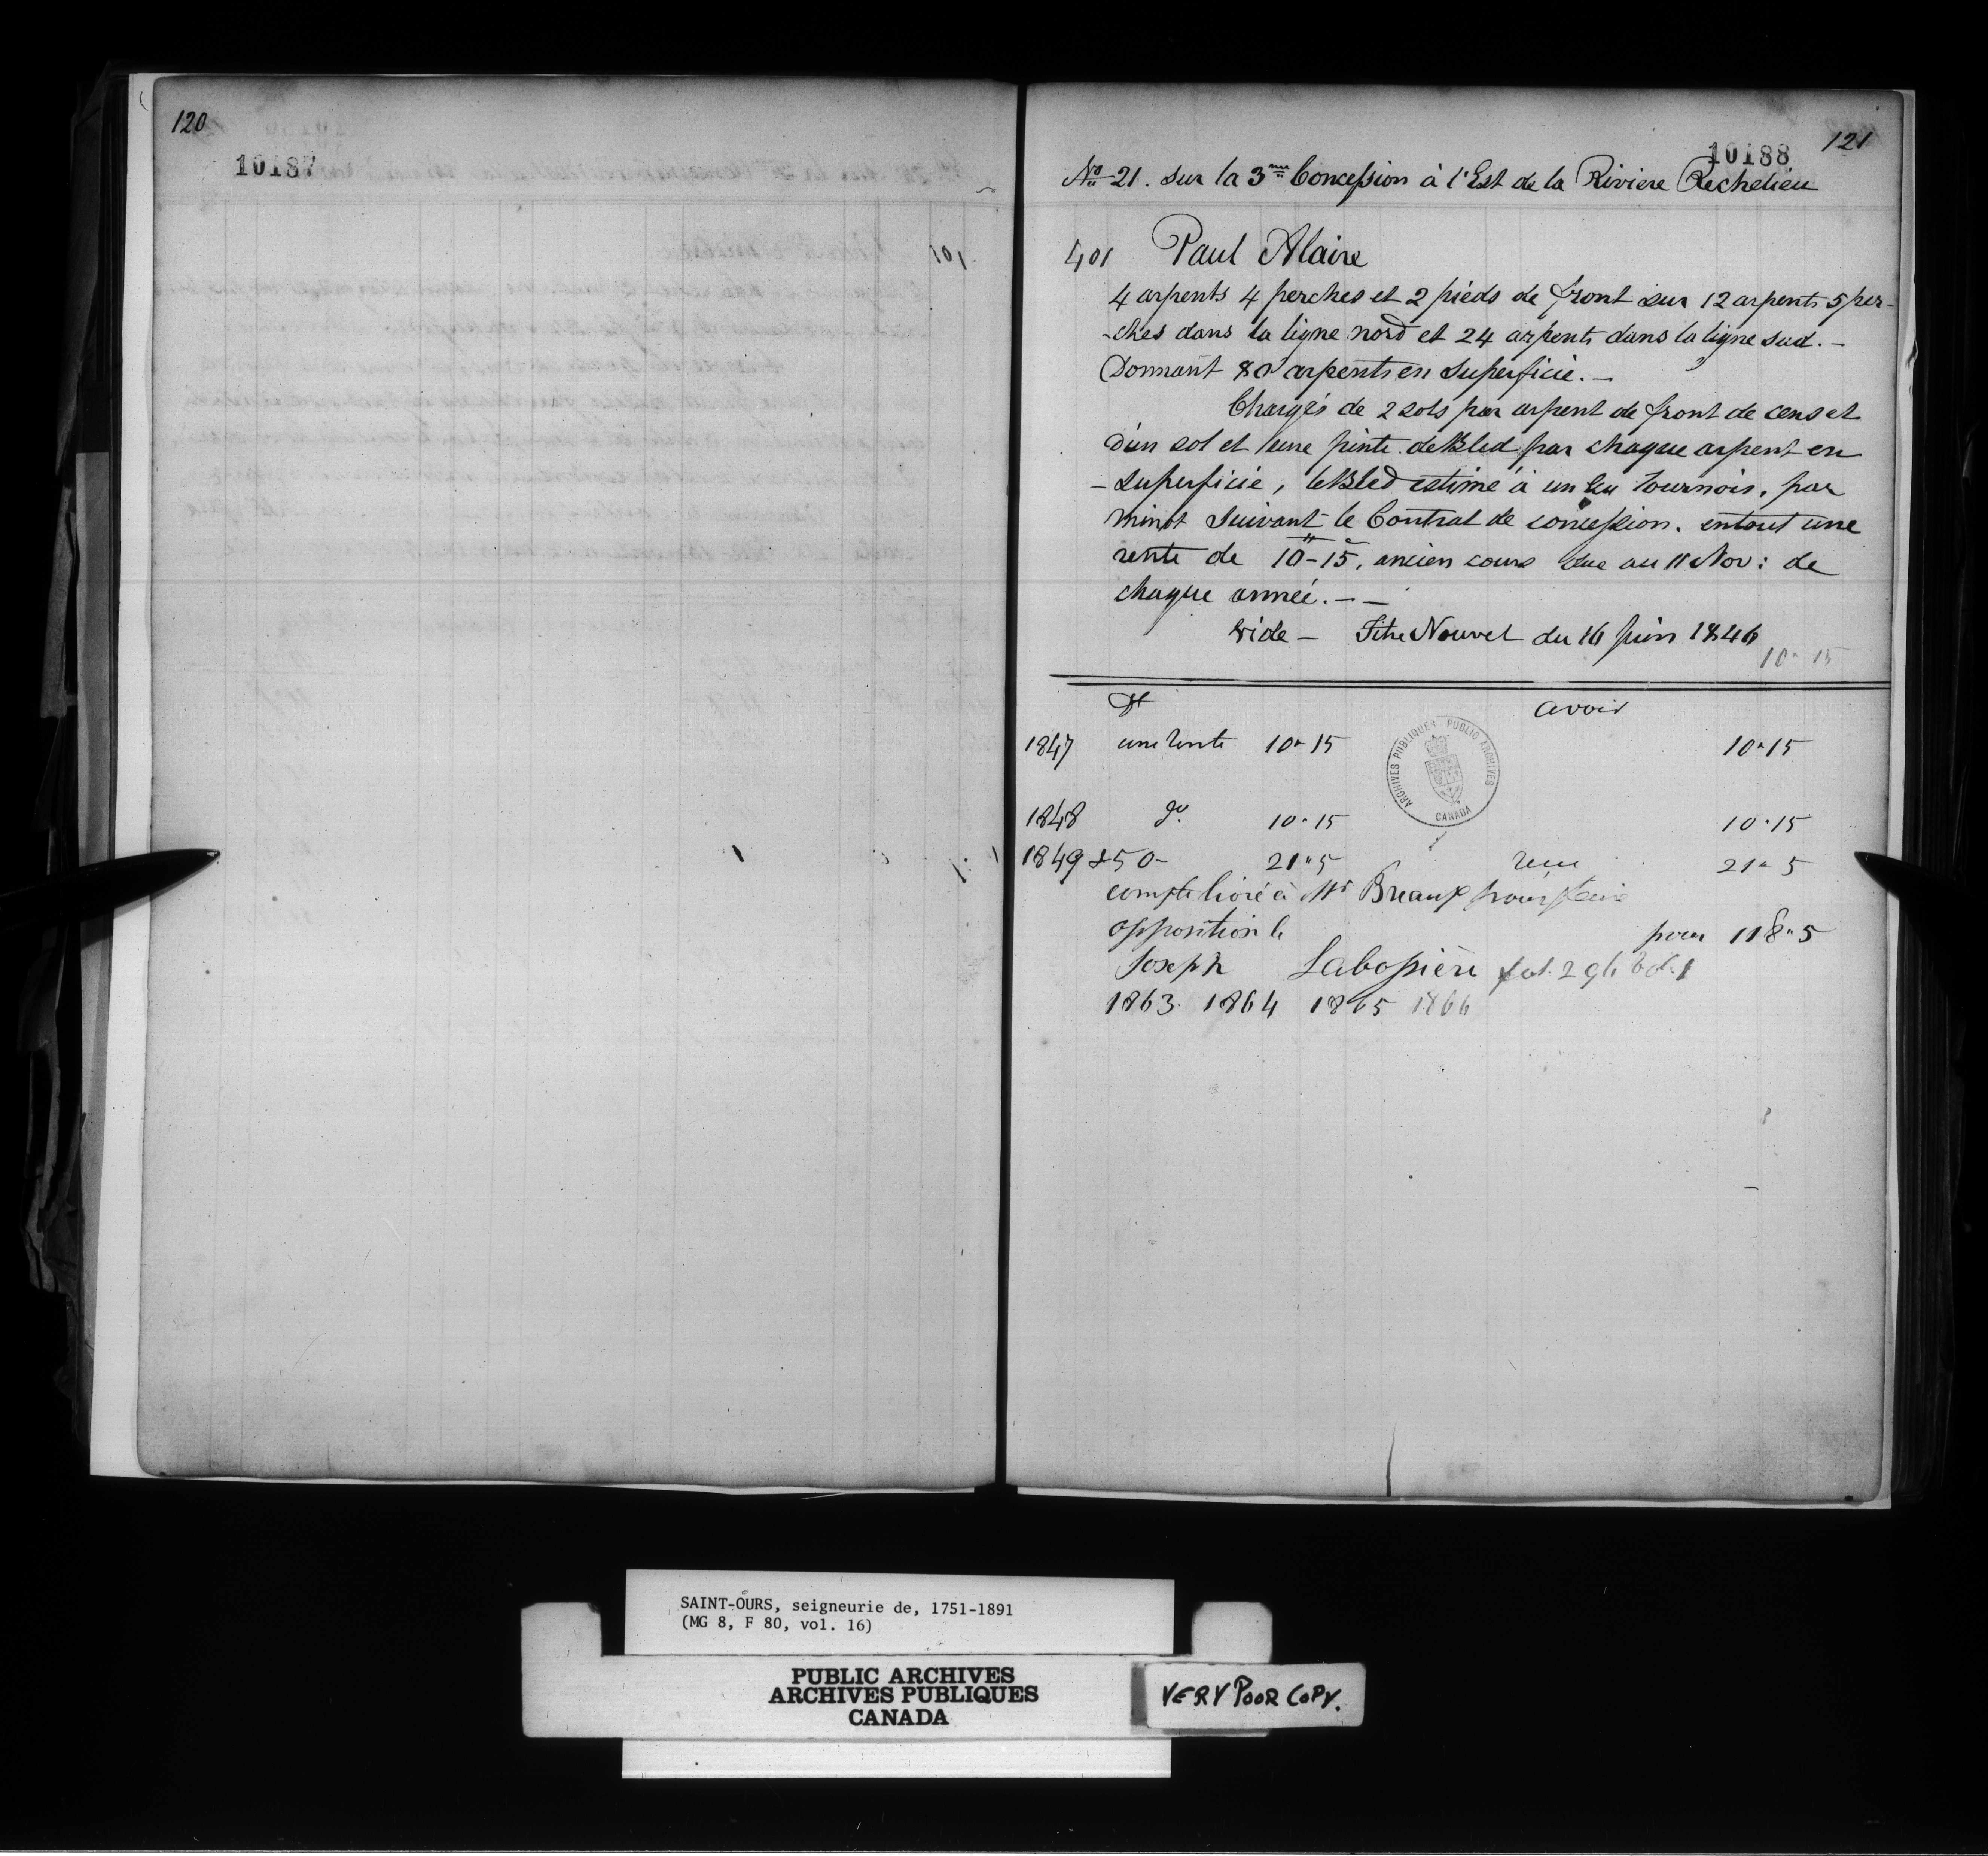 120
10187
101
121
10188
No 21. sur la 3me Concession à l'Est de la Riviere Rechelieu
401 Paul Alaire
4 arpents 4 perches et 2 pieds de front sur 12 arpents 5 per-
-ches dans la ligne nord et 24 arpents dans la ligne sud. -
Donnant 80 arpents en Superficie. -
Chargés de 2 sols par arpent de front de cens et
d'un sol et une pinte de Bled par chaque arpent en
- Superficie, le Bled estimé à un Ecu tournois, par
minot Suivant le Contrat de concession. entout une
rente de 10 - 15, ancien cours due au 11 Nov: de
chaque année. - -
vide - Titre Nouvel du 16 Juin 1846
10 " 15
Dt avoir
1847 une rente 10 " 15 10 " 15
1848 do. 10 " 15 10 " 15
1849 & 50 - 21 " 5 reçu 21 " 5
compte livré à Mr Breaux pour faire
opposition le pour 118 " 5
Joseph Labossière fol. 296 vol. 1
1863. 1864 1865 1866
ARCHIVES PUBLIQUES PUBLIC ARCHIVES
CANADA
SAINT-OURS, seigneurie de, 1751-1891
(MG 8, F 80, vol. 16)
PUBLIC ARCHIVES
ARCHIVES PUBLIQUES
CANADA
VERY POOR COPY.